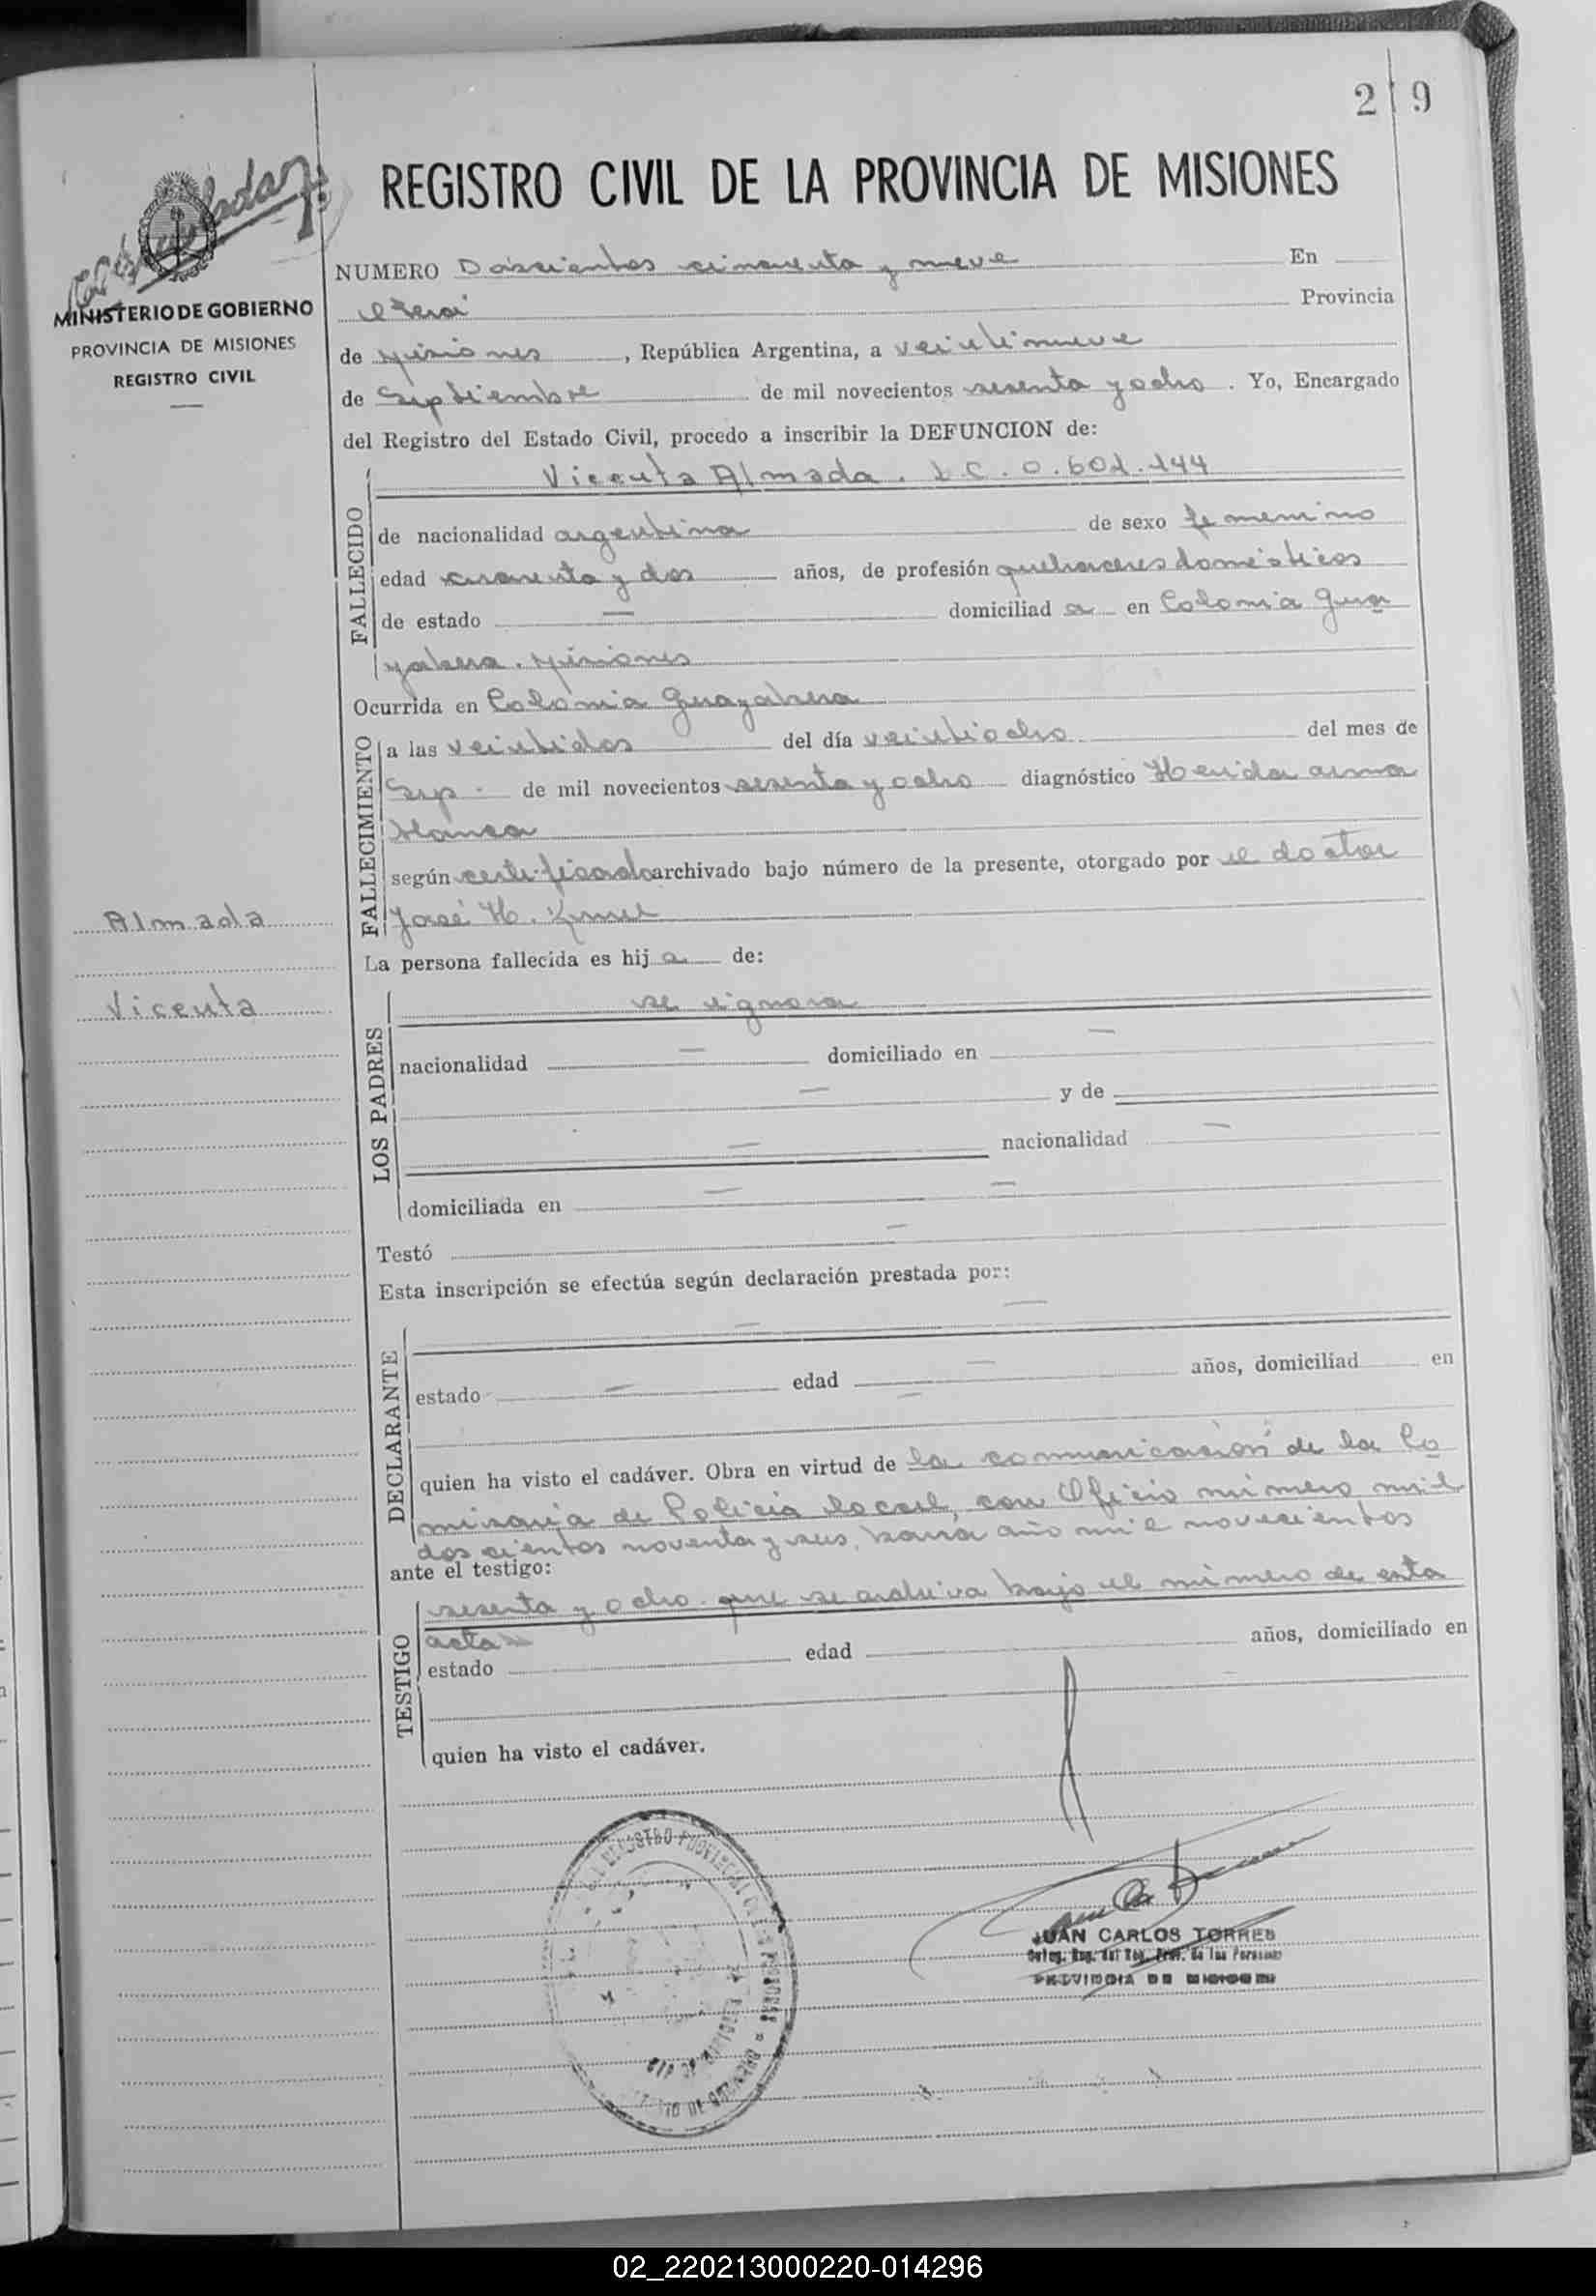 2 9
REGISTRO CIVIL DE LA PROVINCIA DE MISIONES
MINISTERIO DE GOBIERNO
PROVINCIA DE MISIONES
REGISTRO CIVIL
NUMERO Doscientos cincuenta y nueve En
Provincia
de Misiones, República Argentina, a veintinueve
de Septiembre de mil novecientos sesenta y ocho. Yo, Encargado
del Registro del Estado Civil, procedo a inscribir la DEFUNCION de:
FALLECIDO
Vicenta Almada. L.C. 0.601.144
de nacionalidad argentina de sexo femenino
edad y dos años, de profesión quehaceres domésticos
de estado — domiciliad a en Colonia Gua
yabera. Misiones
Ocurrida en Colonia Guayabera
FALLECIMIENTO
a las veintidos del día veintiocho del mes de
Sep. de mil novecientos sesenta y ocho diagnóstico Herida arma
blanca
según certificado archivado bajo número de la presente, otorgado por el doctor
José H.
Almada
Vicenta
La persona fallecida es hij a de:
LOS PADRES
se ignora
nacionalidad — domiciliado en —
— y de
— nacionalidad —
domiciliada en — —
Testó —
Esta inscripción se efectúa según declaración prestada por:
DECLARANTE
— —
estado — edad — años, domiciliad en
—
quien ha visto el cadáver. Obra en virtud de la comunicación de la Co
misaría de Policía local, con Oficio número mil
doscientos noventa y seis, barra año mil novecientos
ante el testigo:
sesenta y ocho que se archiva bajo el número de esta
acta
TESTIGO
estado edad años, domiciliado en
quien ha visto el cadáver.
JUAN CARLOS TORRES
PROVINCIA DE MISIONES
02_220213000220-014296